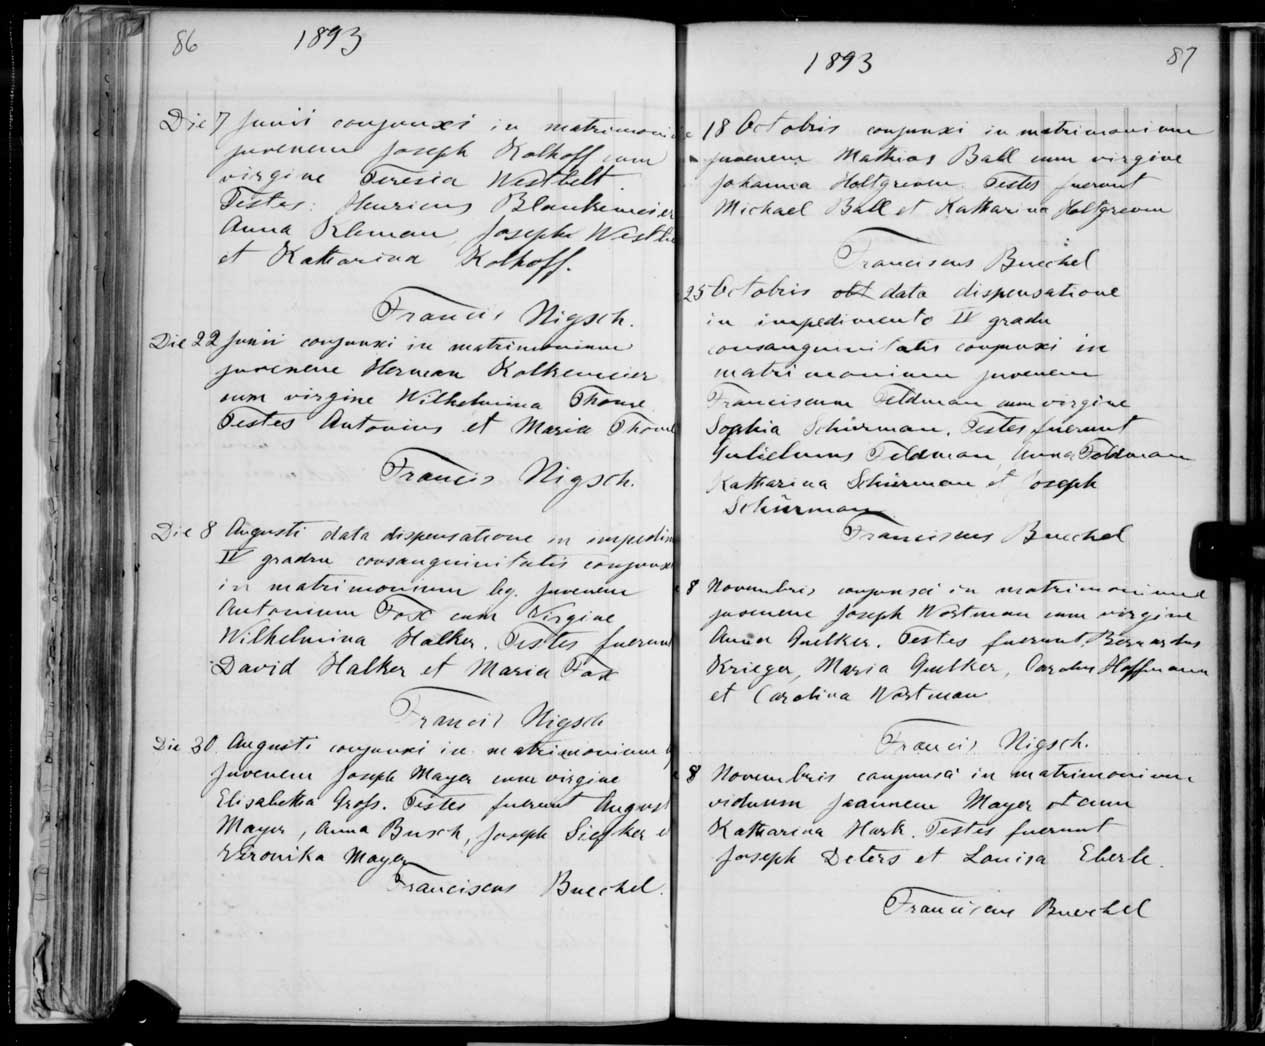 86 1893
Die 7 Junii conjunxi in matrimoni
juvenem Joseph Kolhoff cum
virgine Teresia Westbelt.
Testes: Henricus Blankemeier
Anna Kleman, Joseph Westbe
et Katharina Kolhoff.
Francis Nigsch.
Die 22 Junii conjunxi in matrimonium
juvenem Herman Kolkemeier
cum virgine Wilhelmina Thome
Testes Antonius et Maria Thome
Francis Nigsch.
Die 8 Augusti data dispensatione in impedim
IV gradu consanguinitatis conjunxi
in matrimonium lig. juvenem
Antonium Fox cum Virgine
Wilhelmina Halker. Testes fuerunt
David Halker et Maria Fox
Francis Nigsch
Die 30. Augusti conjunxi in matrimonium
juvenem Joseph Mayer cum virgine
Elisabetha Gross. Testes fuerunt August
Mayer, Anna Busch, Joseph Siefker e
Veronika Mayer
Franciscus Buechel.
1893 87
18 Octobris conjunxi in matrimonium
juvenem Mathias Ball cum virgine
Johanna Holtgreven. Testes fuerunt
Michael Ball et Katharina Holtgreven
Franciscus Buechel
25 Octobris obt data dispensatione
in impedimento IV gradu
consanguinitatis conjunxi in
matrimonium juvenem
Franciscum Feldman cum virgine
Sophia Schürman. Testes fuerunt
Gulielmus Feldman, Anna Feldman
Katharina Schürman et Joseph
Schürman
Franciscus Buechel
8 Novembris conjunxi in matrimonium
juvenem Joseph Wortman cum virgine
Anna Guelker. Testes fuerunt Bernardus
Krieger, Maria Guelker, Carolus Hoffmann
et Carolina Wortman
Francis Nigsch.
8 Novembris conjunxi in matrimonium
viduum Joannem Mayer et cum
Katharina Hark. Testes fuerunt
Joseph Deters et Louisa Eberle.
Franciscus Buechel